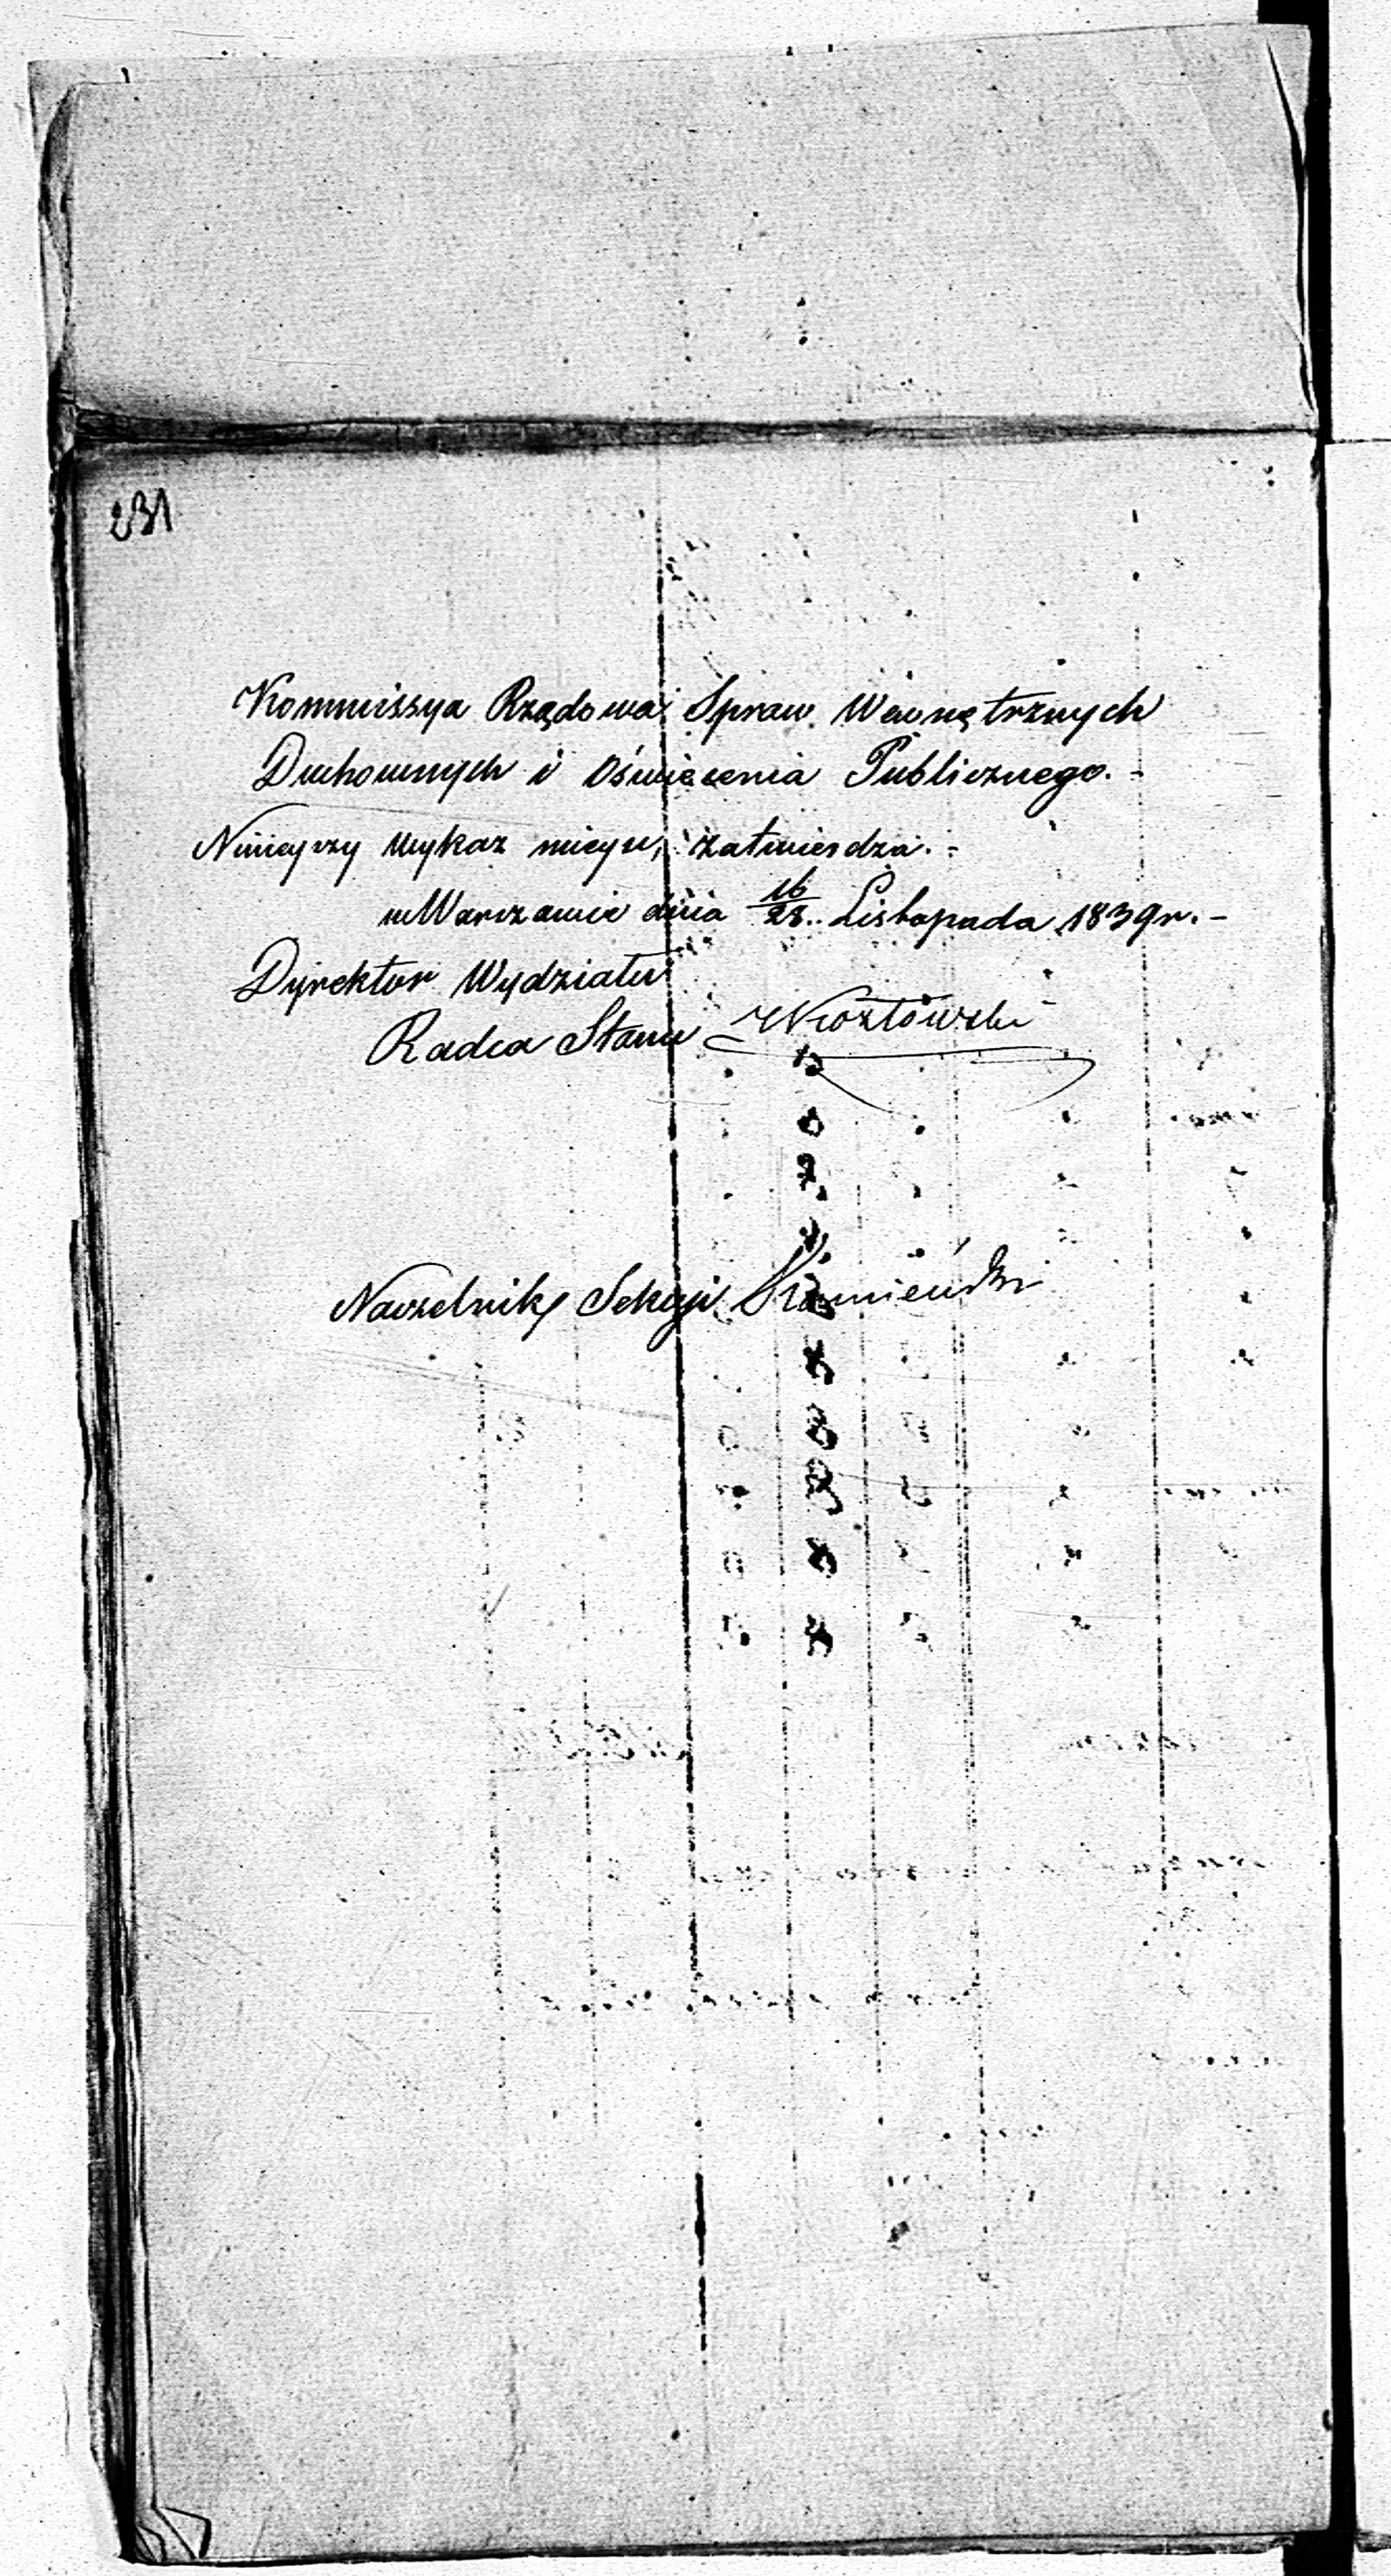 231
Kommissya Rządowa Spraw Wewnętrznych
Duchownych i Oświecenia Publicznego.-
Niniejszy Wykaz mieysc, zatwierdza.-
w Warszawie dnia 16/28. Listopada 1839 r.-
Dyrektor Wydziału
Radca Stanu Kozłowski
Naczelnik Sekcyi Kamieński